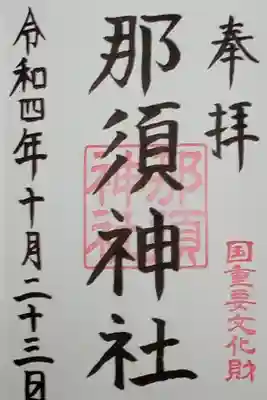 奉拝
国重要文化財
那須神社
那須神社
令和四年十月二十三日